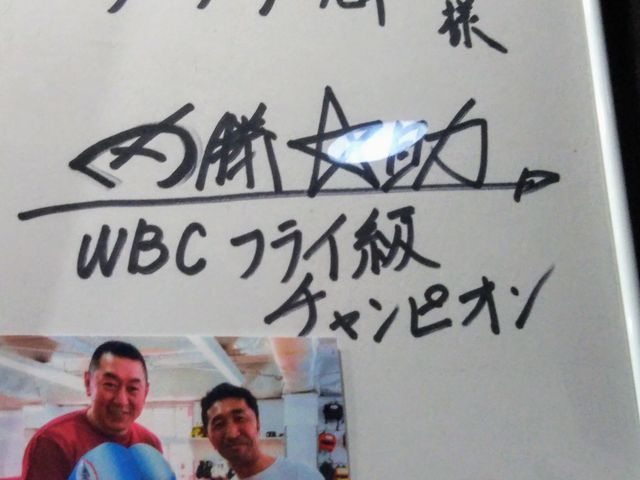 様
内藤大助
WBC フライ級
チャンピオン